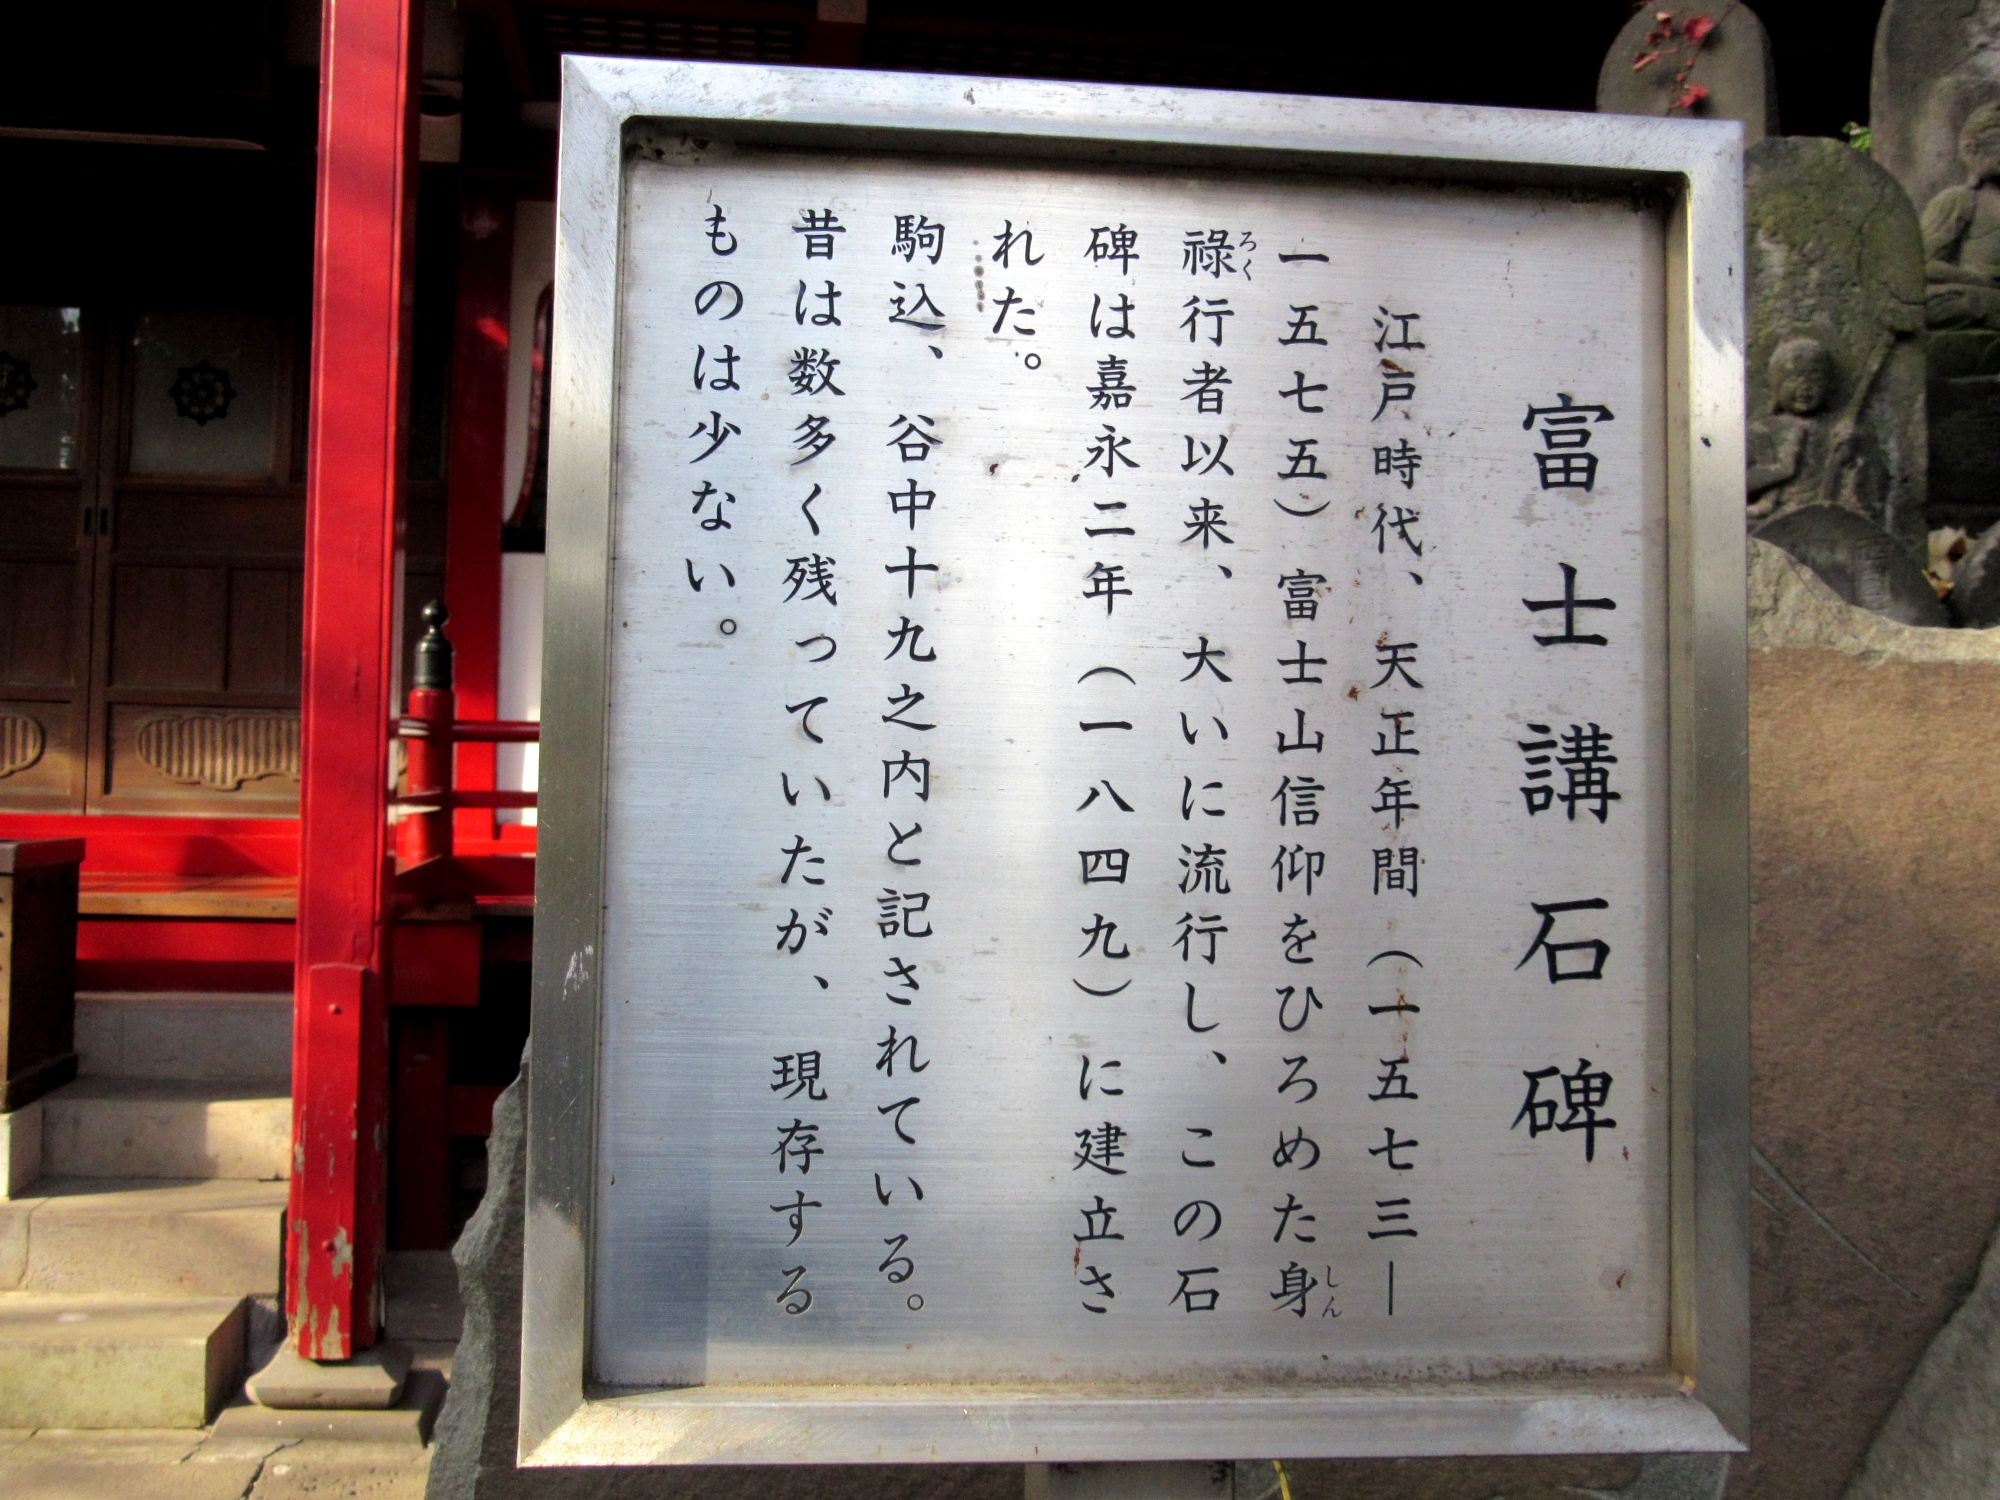 富士講石碑
江戸時代、天正年間（一五七三―
一五七五）富士山信仰をひろめた身
しん
禄行者以来、大いに流行し、この石
ろく
碑は嘉永二年（一八四九）に建立さ
れた。
駒込、谷中十九之内と記されている。
昔は数多く残っていたが、現存する
ものは少ない。